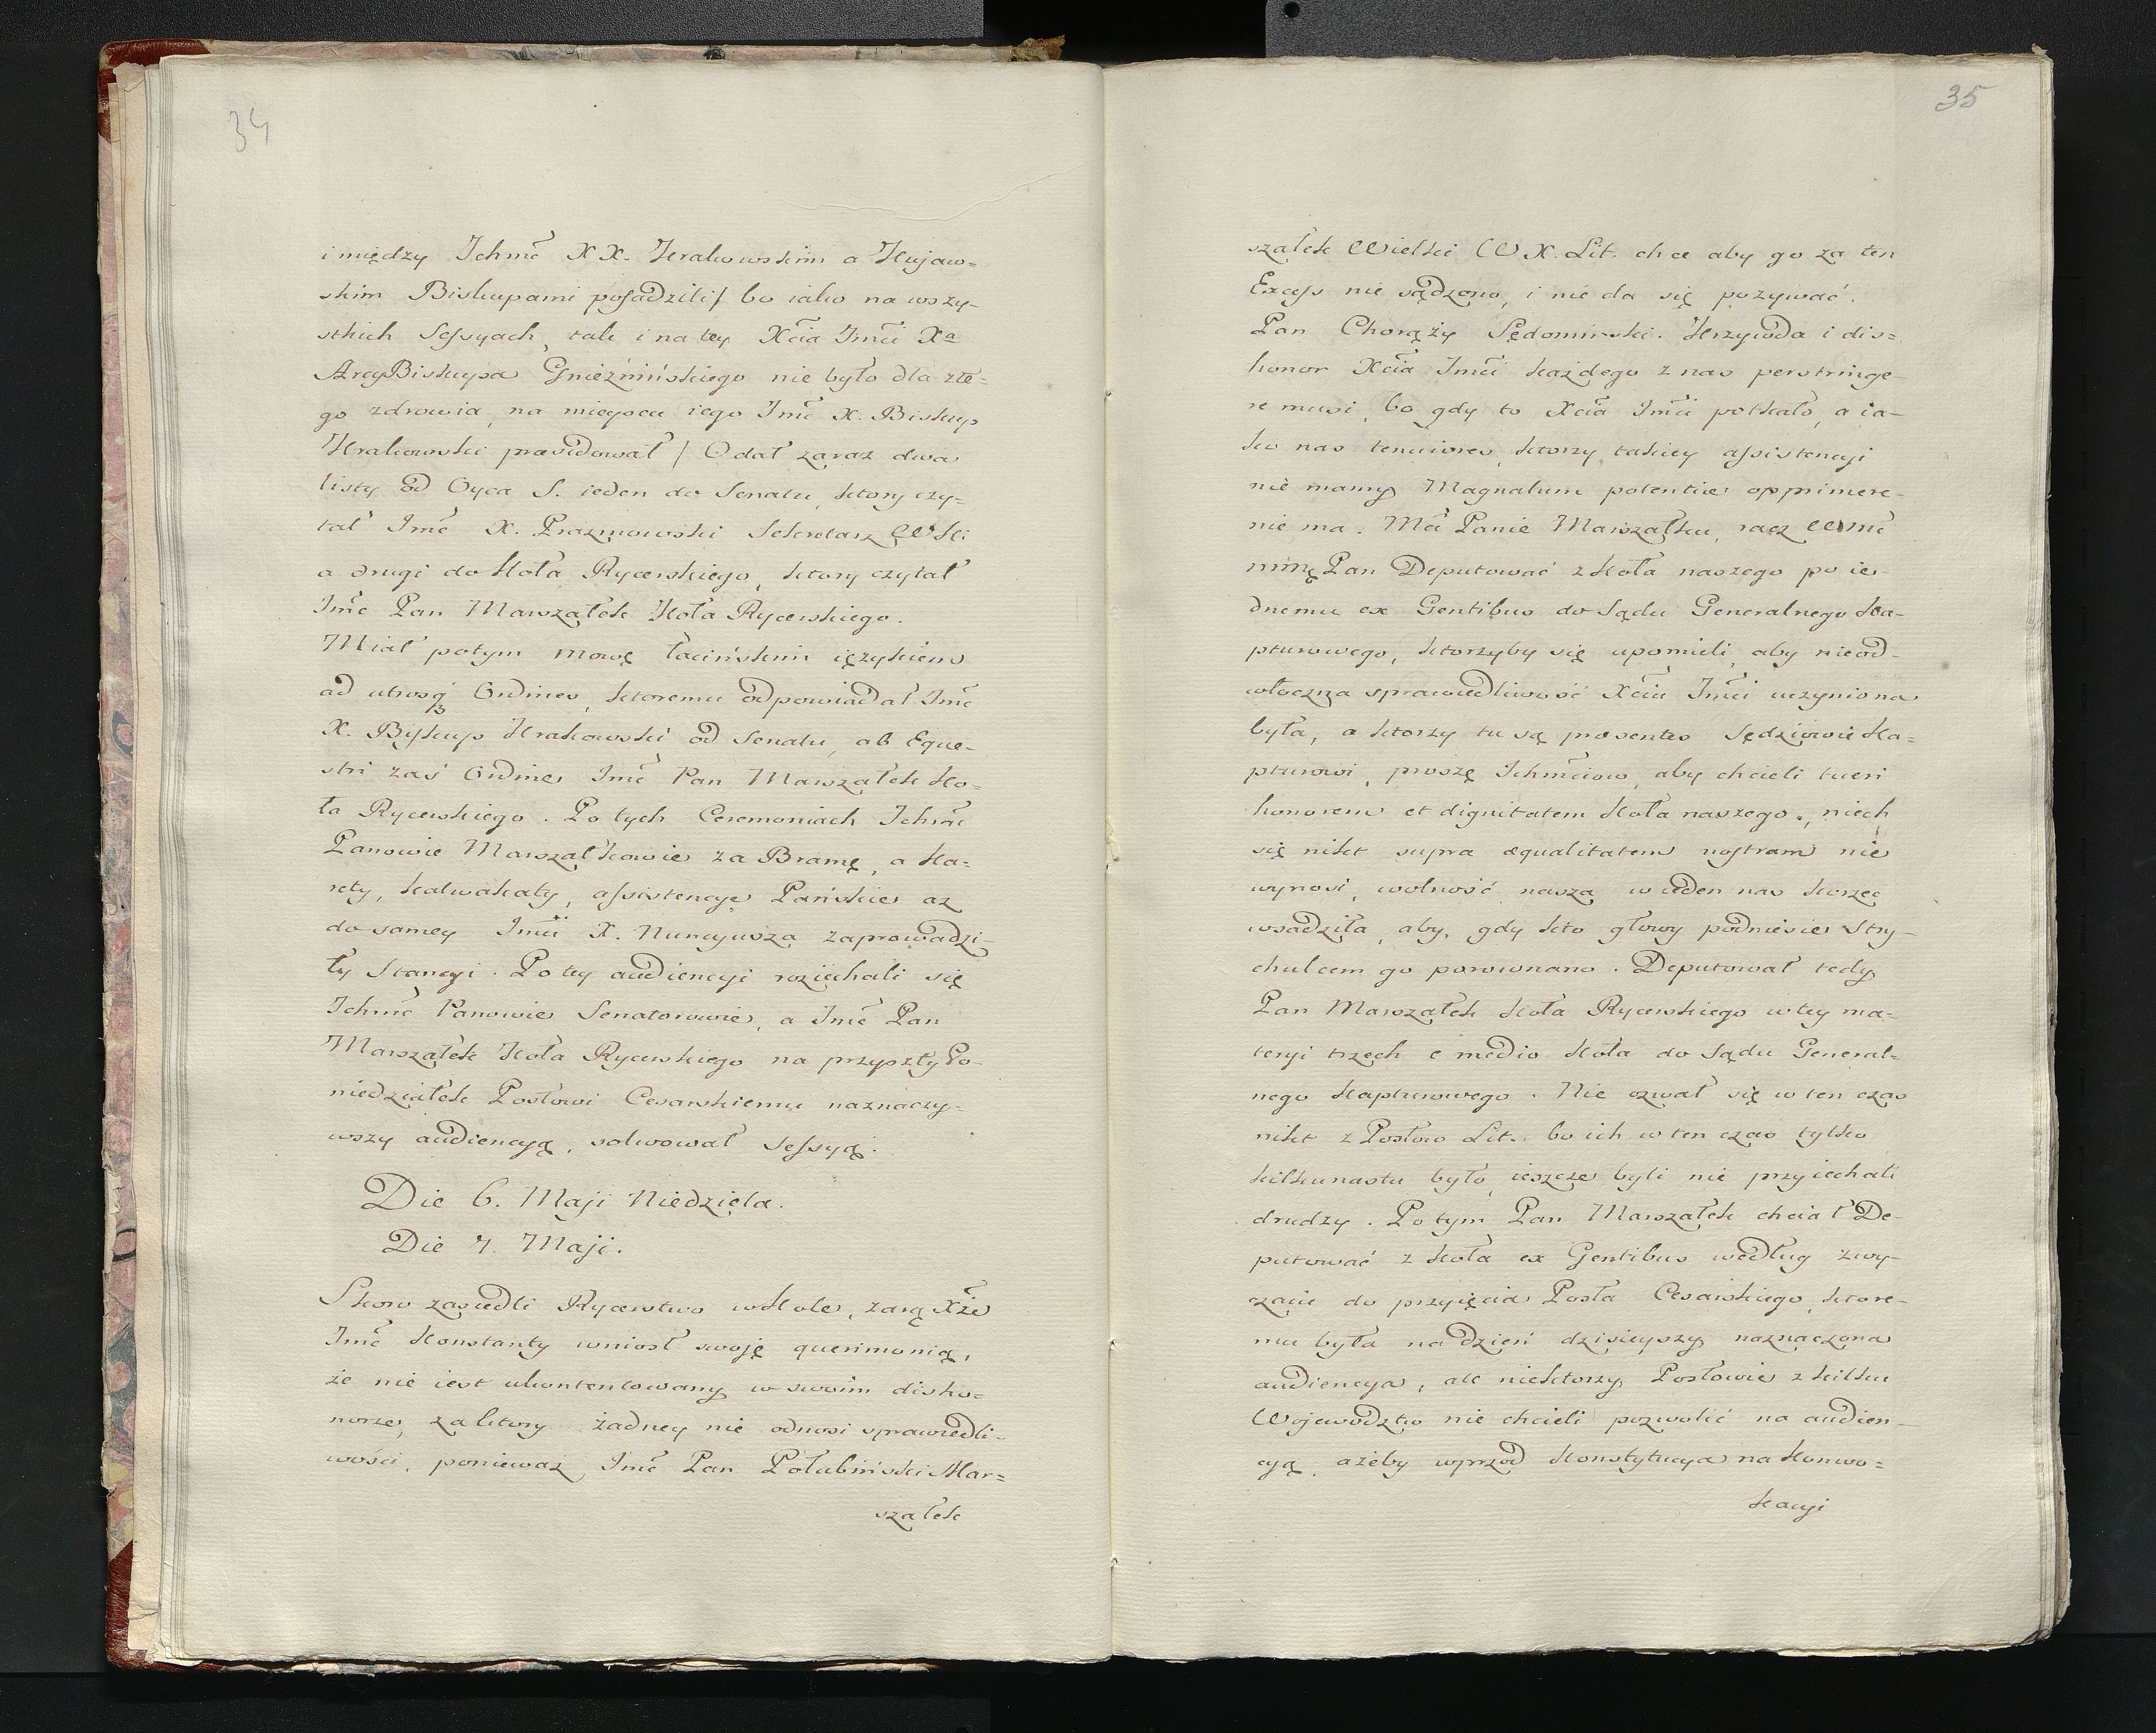 34
i między Ichmć X X. Krakowskim a Kujaw=
skim Biskupami posadzili/ bo iako na wszy-
stkich Sessyach, tak i na tey Xcia Jmći Xa
ArcyBiskupa Gnieźnińskiego nie było dla złe-
go zdrowia, na mieyscu iego Jmć X. Biskup
Krakowski præsidował / Odał zaraz dwa
listy od Oyca S. ieden do Senatu, ktory czy-
tał Jmć X. Prazmowski Sekretarz WKi
a drugi do Koła Rycerskiego, ktory czytał
Jmć Pan Marszałek Koła Rycerskiego.
Miał potym mowę łacińskim ięzykiem
ad utrosq Ordines, ktoremu odpowiadał Jmć
X. Biskup Krakowski od Senatu, ab Eque-
stri zaś Ordine Jmć Pan Marszałek Ko-
ła Rycerskiego. Po tych Ceremoniach Ichmć
Panowie Marszałkowie za Bramę, a Ka=
rety, kalwakaty, assistencye Pańskie az
do samey Jmći X. Nuncyusza zaprowadzi-
ły Stancyi. Po tey audiencyi roziechali się
Ichmć Panowie Senatorowie, a Jmć Pan
Marszałek Koła Rycerskiego na przyszły Po-
niedziałek Posłowi Cesarskiemu naznaczy-
wszy audiencyą, solwował Sessyą.
Die 6. Maji Niedziela.
Die 7. Maji.
Skoro zasiedli Rycerstwo w Kole, zarą Xże
Jmć Konstanty wniosł swoję querimonią,
że nie iest ukontentowany w swoim disho-
norze, za ktory żadney nie odnosi sprawiedli-
wości, ponieważ Jmć Pan Połubiński Mar=
szałek
35
szałek Wielki W X. Lit. chce aby go za ten
Excess nie sądzono, i nie da się pozywać.
Pan Chorąży Sędomirski. Krzywda i dis=
honor Xcia Jmći każdego z nas perstringe-
re musi, bo gdy to Xcia Jmći potkało, a ia-
ko nas tenuiores, ktorzy takiey assistencyi
nie mamy Magnatum potentia opprimere
nie ma. Mći Panie Marszałku, racz WMć
mię Pan Deputować z Koła naszego po ie-
dnemu ex Gentibus do Sądu Generalnego Ka-
pturowego, ktorzyby się upomieli, aby nieod-
włoczna sprawiedliwość Xciu Jmći uczyniona
była, a ktorzy tu są præsentes Sędziowie Ka=
pturowi, proszę Ichmciow, aby chcieli tueri
honorem et dignitatem Koła naszego, niech
się nikt supra æqualitatem nostram nie
wynosi, wolność nasza w ieden nas korzec
wsadziła, aby, gdy kto głowy podniesie stry-
chulcem go porownano. Deputował tedy
Pan Marszałek Koła Rycerskiego w tey ma=
teryi trzech e medio Koła do Sądu General=
nego Kapturowego. Nie ozwał się w ten czas
nikt z Posłow Lit. bo ich w ten czas tylko
kilkunastu było, ieszcze byli nie przyiechali
drudzy. Po tym Pan Marszałek chciał De-
putować z Koła ex Gentibus według zwy-
czaiu do przyięcia Posła Cesarskiego, ktore-
mu była na dzień dzisieyszy naznaczona
audiencya, ale niektorzy Posłowie z kilku
Wojewodztw nie chcieli pozwolić na audien-
cyą, ażeby wprzod Konstytucya na Konwo=
kacyi